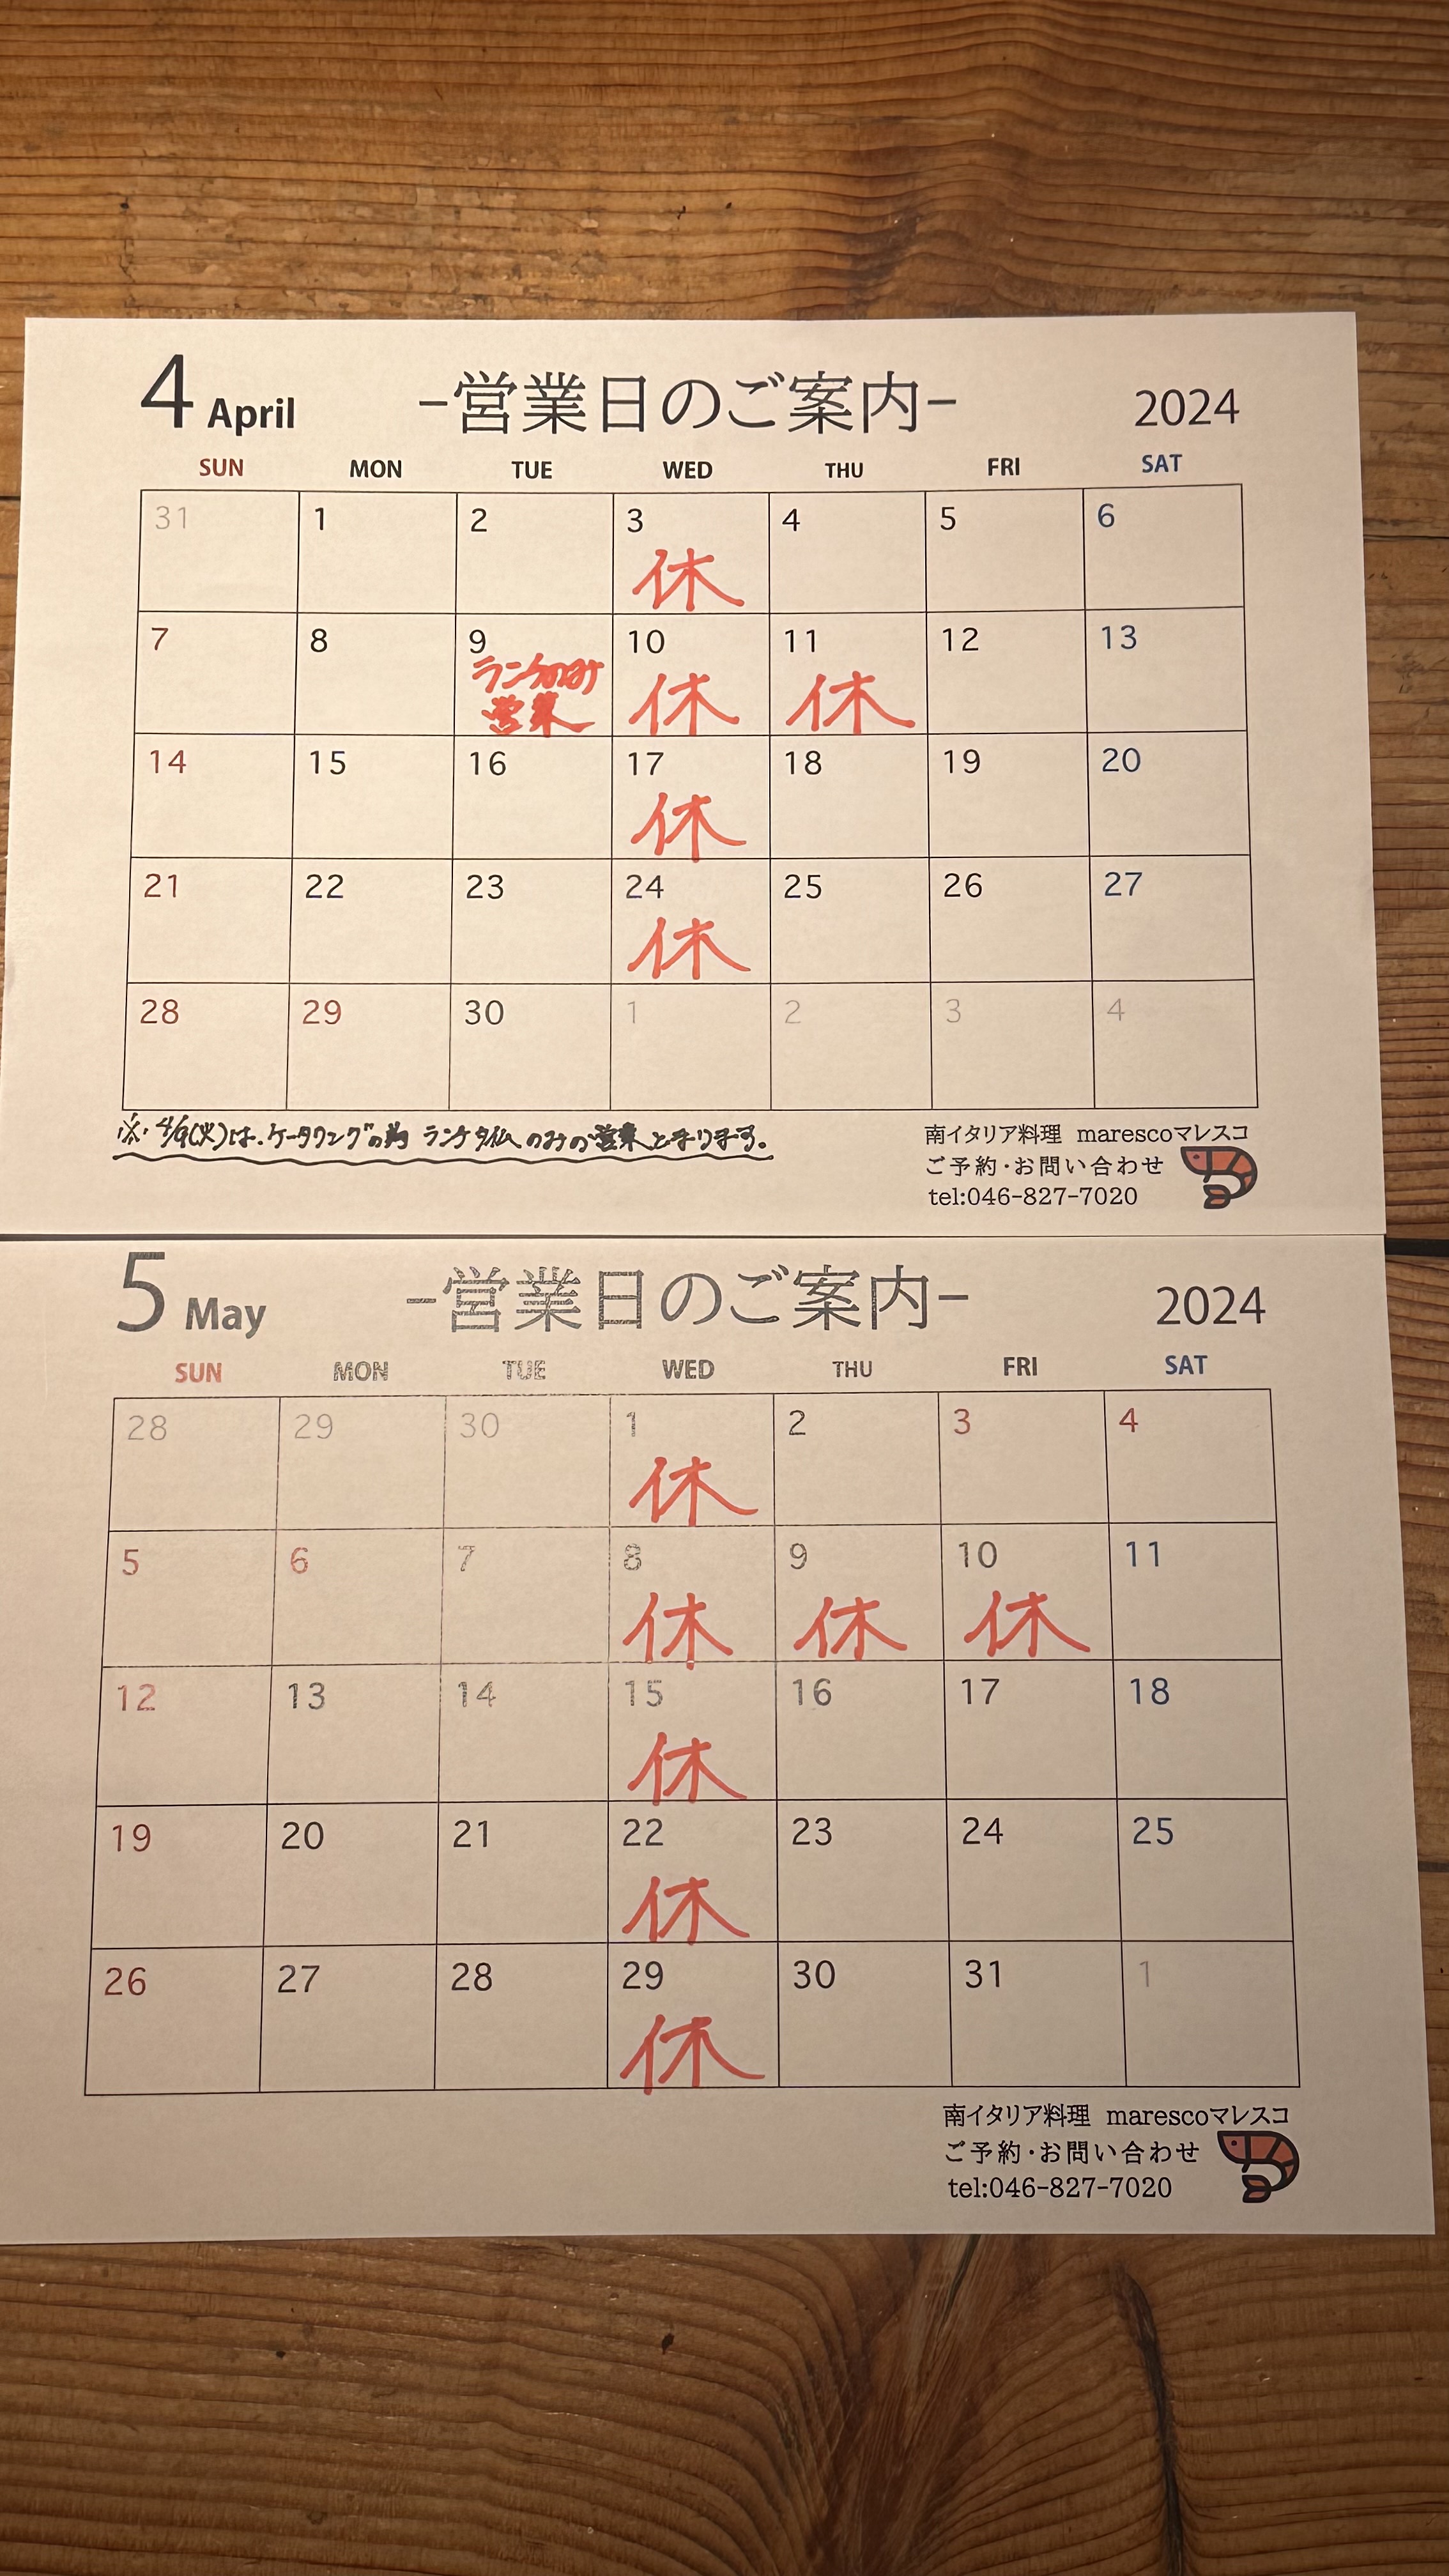 4 April -営業日のご案内- 2024
SUN MON TUE WED THU FRI SAT
31 1 2 3 4 5 6
休
7 8 9 10 11 12 13
ランチのみ 休 休
営業
14 15 16 17 18 19 20
休
21 22 23 24 25 26 27
休
28 29 30 1 2 3 4
※ 4/9(火)は、ケータリングの為 ランチタイムのみの営業となります。
南イタリア料理 marescoマレスコ
ご予約・お問い合わせ
tel:046-827-7020
5 May -営業日のご案内- 2024
SUN MON TUE WED THU FRI SAT
28 29 30 1 2 3 4
休
5 6 7 8 9 10 11
休 休 休
12 13 14 15 16 17 18
休
19 20 21 22 23 24 25
休
26 27 28 29 30 31 1
休
南イタリア料理 marescoマレスコ
ご予約・お問い合わせ
tel:046-827-7020